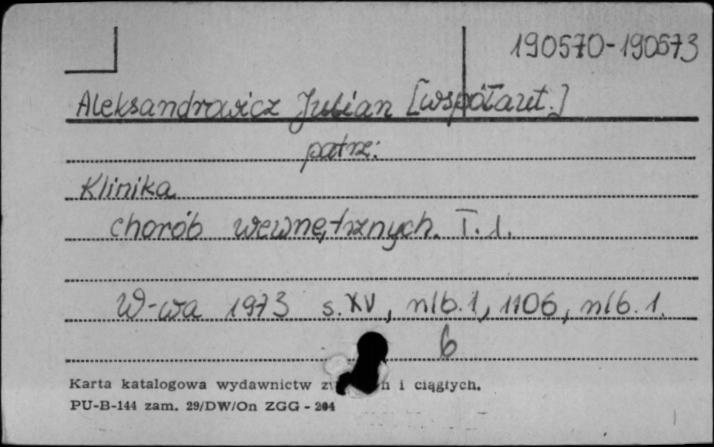 190570-190573
Aleksandrowicz Julian [współaut.]
patrz:
Klinika
chorób wewnętrznych. T. 1.
W-wa 1973 s. XV, nlb. 1, 1106, nlb. 1.
6
Karta katalogowa wydawnictw i ciągłych.
PU-B-144 zam. 29/DW/On ZGG - 204